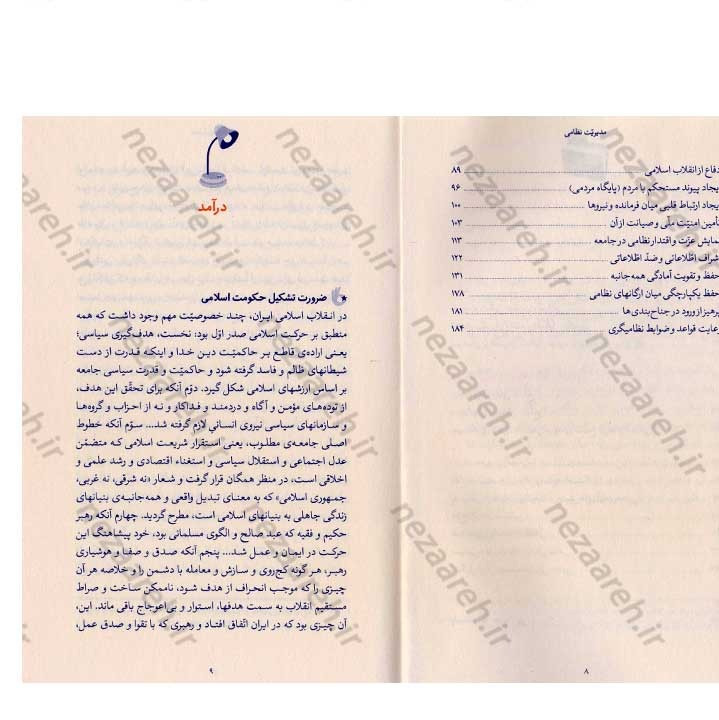 مدیریّت نظامی
دفاع از انقلاب اسلامی ۸۹
یجاد پیوند مستحکم با مردم (پایگاه مردمی) ۹۶
یجاد ارتباط قلبی میان فرمانده و نیروها ۱۰۰
تأمین امنیّت ملّی و صیانت از آن ۱۰۳
نمایش عزّت و اقتدار نظامی در جامعه ۱۱۳
شراف اطّلاعاتی و ضدّ اطّلاعاتی ۱۲۲
حفظ و تقویت آمادگی همه‌جانبه ۱۳۱
حفظ یکپارچگی میان ارگانهای نظامی ۱۷۸
پرهیز از ورود در جناح‌بندی‌ها ۱۸۱
رعایت قواعد و ضوابط نظامیگری ۱۸۴
۸
درآمد
ضرورت تشکیل حکومت اسلامی
در انقلاب اسلامی ایران، چند خصوصیّت مهم وجود داشت که همه
منطبق بر حرکت اسلامی صدر اوّل بود: نخست، هدف‌گیری سیاسی؛
یعنی اراده‌ی قاطع بر حاکمیّت دین خدا و اینکه قدرت از دست
شیطانهای ظالم و فاسد گرفته شود و حاکمیّت و قدرت سیاسی جامعه
بر اساس ارزشهای اسلامی شکل گیرد. دوّم آنکه برای تحقّق این هدف،
از توده‌های مؤمن و آگاه و دردمند و فداکار و نه از احزاب و گروه‌ها
و سازمانهای سیاسی نیروی انسانیِ لازم گرفته شد... سوّم آنکه خطوط
اصلی جامعه‌ی مطلوب، یعنی استقرار شریعت اسلامی که متضمّن
عدل اجتماعی و استقلال سیاسی و استغناء اقتصادی و رشد علمی و
اخلاقی است، در منظر همگان قرار گرفت و شعار «نه شرقی، نه غربی،
جمهوری اسلامی» که به معنای تبدیل واقعی و همه‌جانبه‌ی بنیانهای
زندگی جاهلی به بنیانهای اسلامی است، مطرح گردید. چهارم آنکه رهبر
حکیم و فقیه که عبد صالح و الگوی مسلمانی بود، خود پیشاهنگ این
حرکت در ایمان و عمل شد... پنجم آنکه صدق و صفا و هوشیاری
رهبر، هر گونه کج‌روی و سازش و معامله با دشمن را و خلاصه هر آن
چیزی را که موجب انحراف از هدف شود، ناممکن ساخت و صراط
مستقیم انقلاب به سمت هدفها، استوار و بی‌اعوجاج باقی ماند. این،
آن چیزی بود که در ایران اتّفاق افتاد و رهبری که با تقوا و صدق عمل،
۹
nezaareh.ir
nezaareh.ir
nezaareh.ir
nezaareh.ir
nezaareh.ir
nezaareh.ir
nezaareh.ir
nezaareh.ir
nezaareh.ir
nezaareh.ir